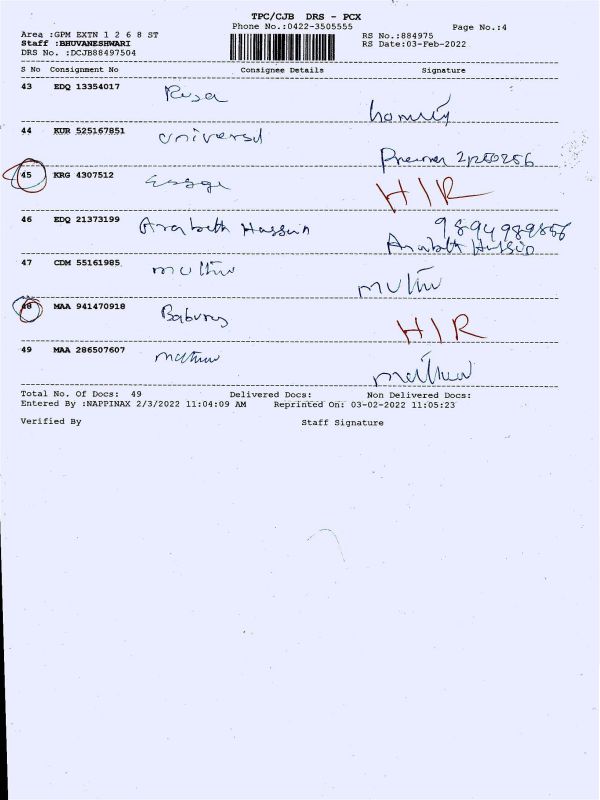 TPC/CJB DRS - PCX
Phone No.:0422-3505555 Page No.:4
Area :GPM EXTN 1 2 6 8 ST RS No.:884975
Staff :BHUVANESHWARI RS Date:03-Feb-2022
DRS No. :DCJB88497504
S No Consignment No Consignee Details Signature
43 EDQ 13354017
44 KUR 525167851 universal
45 KRG 4307512 HIR
46 EDQ 21373199 Hassun 9894989856
47 CDM 55161985 muthu muthu
48 MAA 941470918 HIR
49 MAA 286507607 mathew mathew
Total No. Of Docs: 49 Delivered Docs: Non Delivered Docs:
Entered By :NAPPINAX 2/3/2022 11:04:09 AM Reprinted On: 03-02-2022 11:05:23
Verified By Staff Signature